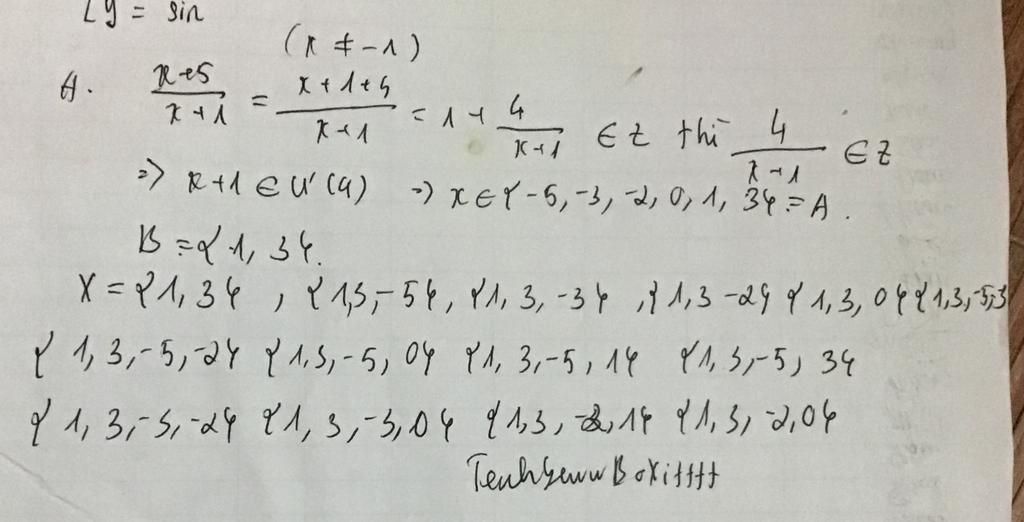 [y = sin
(x ≠ -1)
A. (x+5)/(x+1) = (x+1+4)/(x+1) = 1 + 4/(x+1) ∈ Z thì 4/(x+1) ∈ Z
=> x+1 ∈ Ư(4) => x ∈ {-5, -3, -2, 0, 1, 3} = A.
B = {1, 3}.
X = {1, 3}, {1,3,-5}, {1, 3, -3}, {1, 3 -2} {1, 3, 0} {1,3,-5,3
{1, 3,-5,-2} {1,3,-5, 0} {1, 3,-5, 1} {1, 3,-5, 3}
{1, 3,-3,-2} {1, 3,-3,0} {1,3, 1} {1, 3, -2,0}